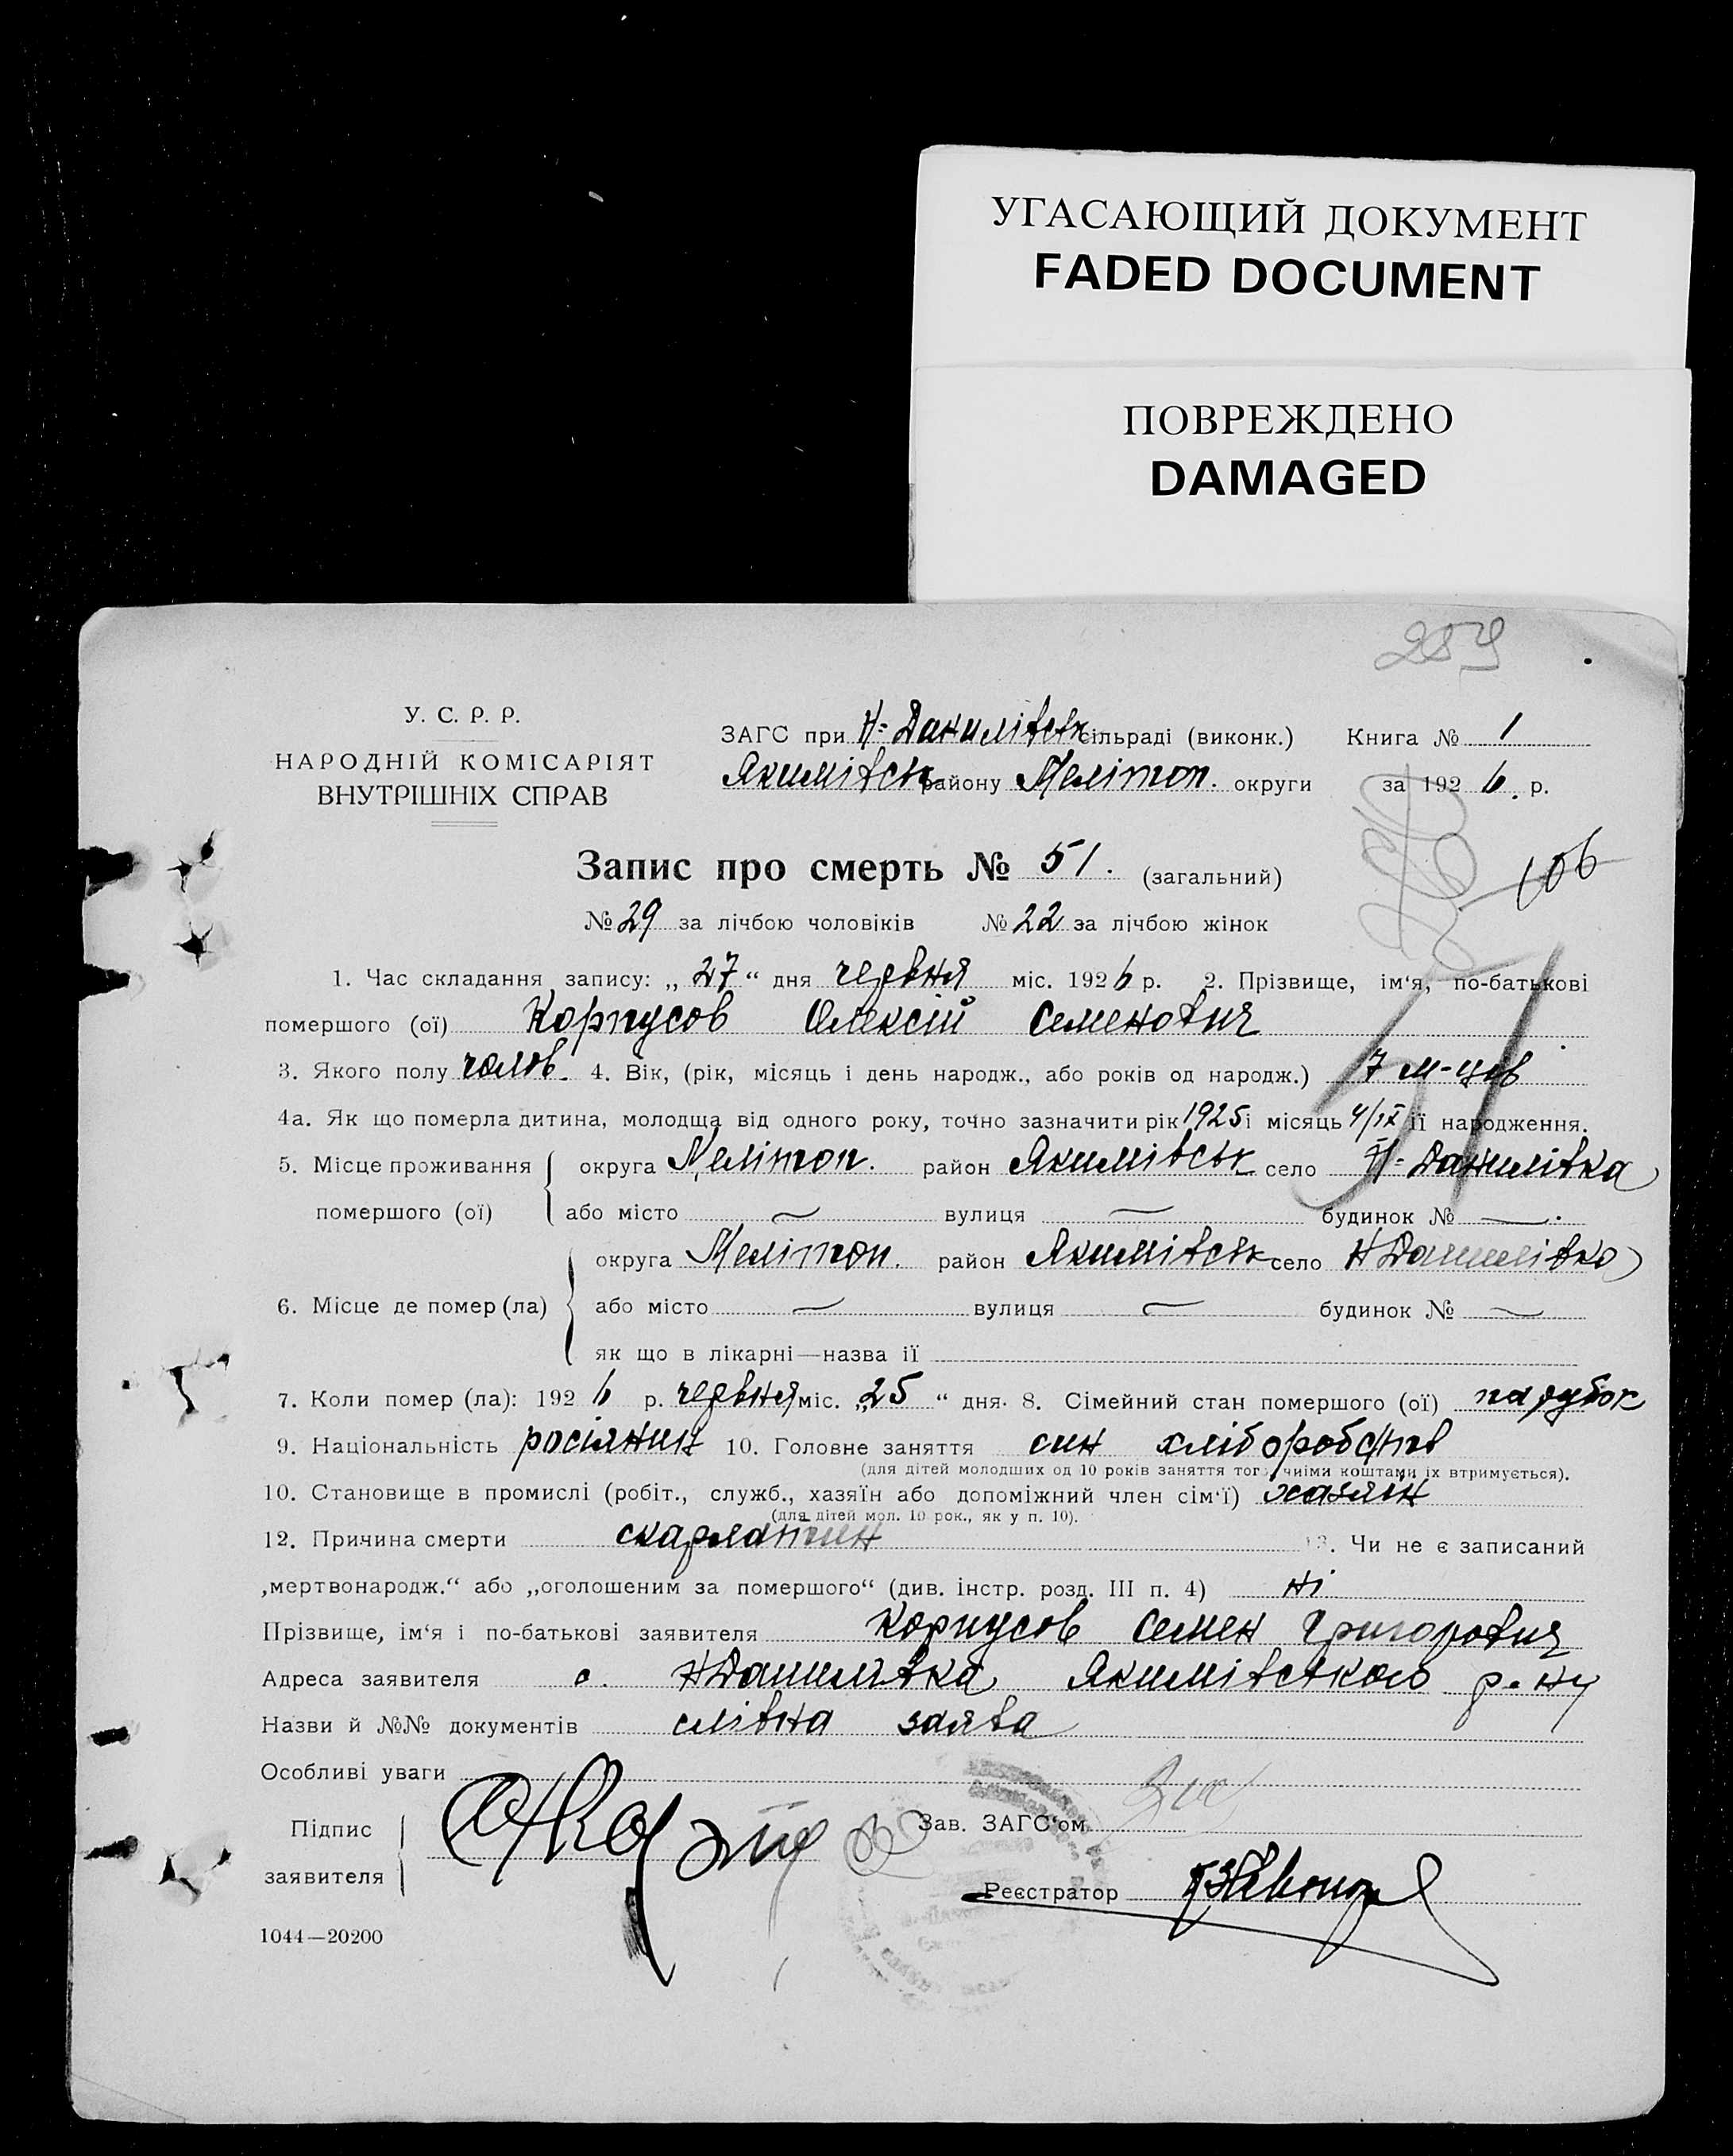 УГАСАЮЩИЙ ДОКУМЕНТ
FADED DOCUMENT
ПОВРЕЖДЕНО
DAMAGED
259
У. С. Р. Р.
НАРОДНІЙ КОМІСАРІЯТ
ВНУТРІШНІХ СПРАВ
ЗАГС при Н-Данилівськ сільраді (виконк.) Книга № 1
Якимівськ району Мелітоп. округи за 1926. р.
106
Запис про смерть № 51. (загальний)
№ 29 за лічбою чоловіків № 22 за лічбою жінок
1. Час складання запису: „ 27 “ дня червня міс. 1926 р. 2. Прізвище, ім‘я, по-батькові
помершого (ої) Корпусов Олексій Семенович
3. Якого полу чолов. 4. Вік, (рік, місяць і день народж., або років од народж.) 7 м-цов
4а. Як що померла дитина, молодща від одного року, точно зазначити рік 1925 і місяць 4/ІХ її народження.
5. Місце проживання округа Мелітоп. район Якимівськ село Н-Данилівка
помершого (ої) або місто — вулиця — будинок № —.
округа Мелітоп. район Якимівськ село Н Данилівка
6. Місце де помер (ла) або місто — вулиця — будинок № —
як що в лікарні—назва її
7. Коли помер (ла): 1926 р. червня міс. „25 “ дня. 8. Сімейний стан помершого (ої) парубок
9. Національність росіянин 10. Головне заняття син хлібороба
(для дітей молодших од 10 років заняття того, чиїми коштами їх втримується).
10. Становище в промислі (робіт., служб., хазяїн або допоміжний член сім‘ї) хазяїн
(для дітей мол. 10 рок., як у п. 10).
12. Причина смерти скарлатин 13. Чи не є записаний
„мертвонародж.“ або „оголошеним за помершого“ (див. інстр. розд. III п. 4) ні
Прізвище, ім‘я і по-батькові заявителя Корпусов Семен Григорович
Адреса заявителя с. Н Данилівка Якимівського р-ну
Назви й №№ документів слівна заява
Особливі уваги
Підпис
заявителя
Зав. ЗАГС‘ом
Реєстратор
1044—20200